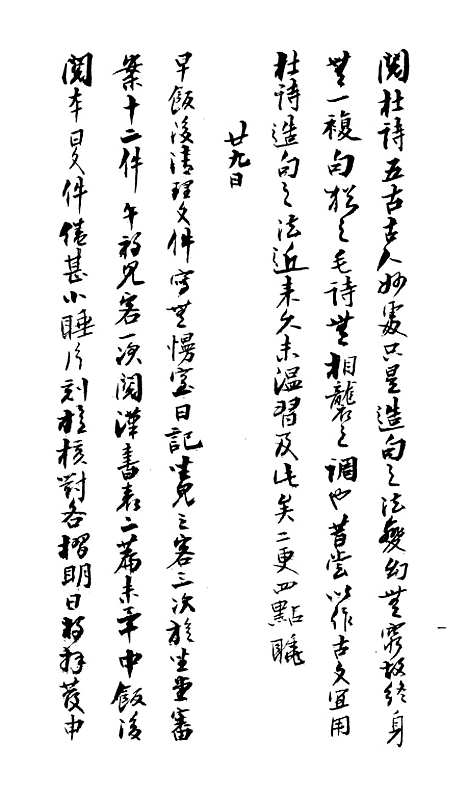 閱杜詩五古古人妙處只是造句之法變幻無窮故終身
無一複句猶之毛詩無相襲之調也昔嘗以作古文宜用
杜詩造句之法近來久未溫習及此矣二更四點睡
廿九日
早飯後清理文件寫無慢室日記坐見之客三次於坐堂審
案十二件午初見客一次閱漢書表二葉未畢中飯後
閱本日文件倦甚小睡片刻旋核對各摺明日將拜發申